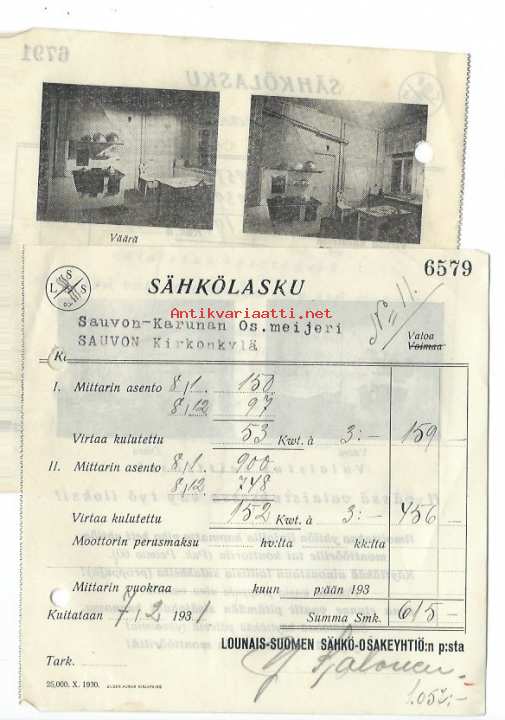 6791
SÄHKÖLASKU
Väärä
L S S
SÄHKÖLASKU
6579
Antikvariaatti.net
Sauvon-Karunan Os.meijeri
SAUVON Kirkonkylä
No 11.
Valoa
Voimaa
I. Mittarin asento 8/1 150
8/12 97
Virtaa kulutettu 53 Kwt. à 3:- 159
II. Mittarin asento 8/1 900
8/12 748
Virtaa kulutettu 152 Kwt. à 3:- 456
Moottorin perusmaksu hv:lta kk:lta
Mittarin vuokraa kuun p:ään 193
Kuitataan 7/2 1931 Summa Smk. 615 -
LOUNAIS-SUOMEN SÄHKÖ-OSAKEYHTIÖ:n p:sta
Tark. Salonen
25,000. X. 1930.